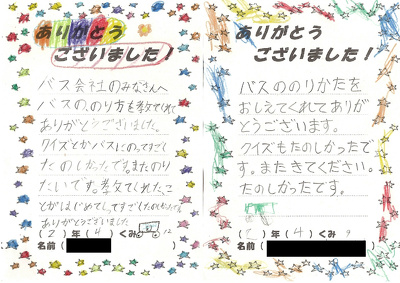 ありがとう
ございました！
バス会社のみなさんへ
バスの、のり方を教えてくれて
ありがとうございました。
クイズとかバスにのってすごし
たのしかったです。またのり
たいです。教えてくれたこ
とがはじめてしてすごしたのしかったです
ありがとうございました
(2)年(4)くみ
名前
ありがとう
ございました！
バスののりかたを
おしえてくれてありが
とうございます。
クイズもたのしかったで
す。またきてください。
たのしかったです。
(2)年(4)くみ 9
名前